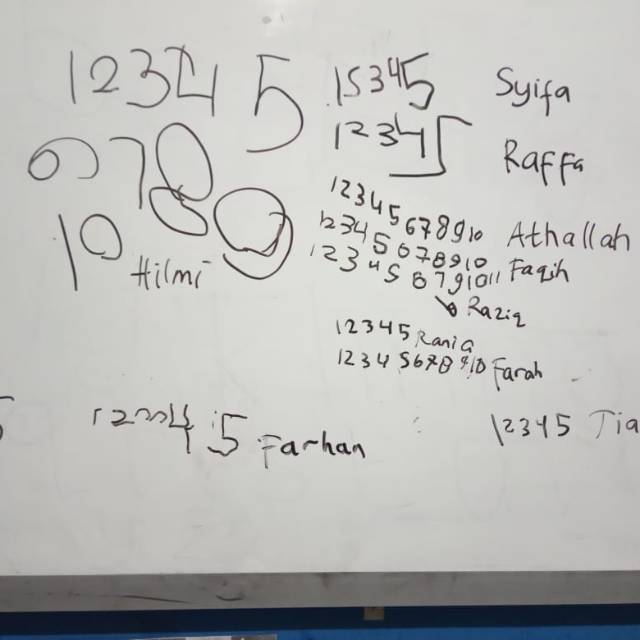 1 2 3 4 5
6 7 8 9
10
Hilmi
1 5 3 4 5 Syifa
1 2 3 4 5 Raffa
1 2 3 4 5 6 7 8 9 10 Athallah
1 2 3 4 5 6 7 8 9 10 Faqih
1 2 3 4 5 6 7 9 10 11
Raziq
1 2 3 4 5 Rania
1 2 3 4 5 6 7 8 9 10 Farah
5
1 2 3 4 5 Farhan
1 2 3 4 5 Tia